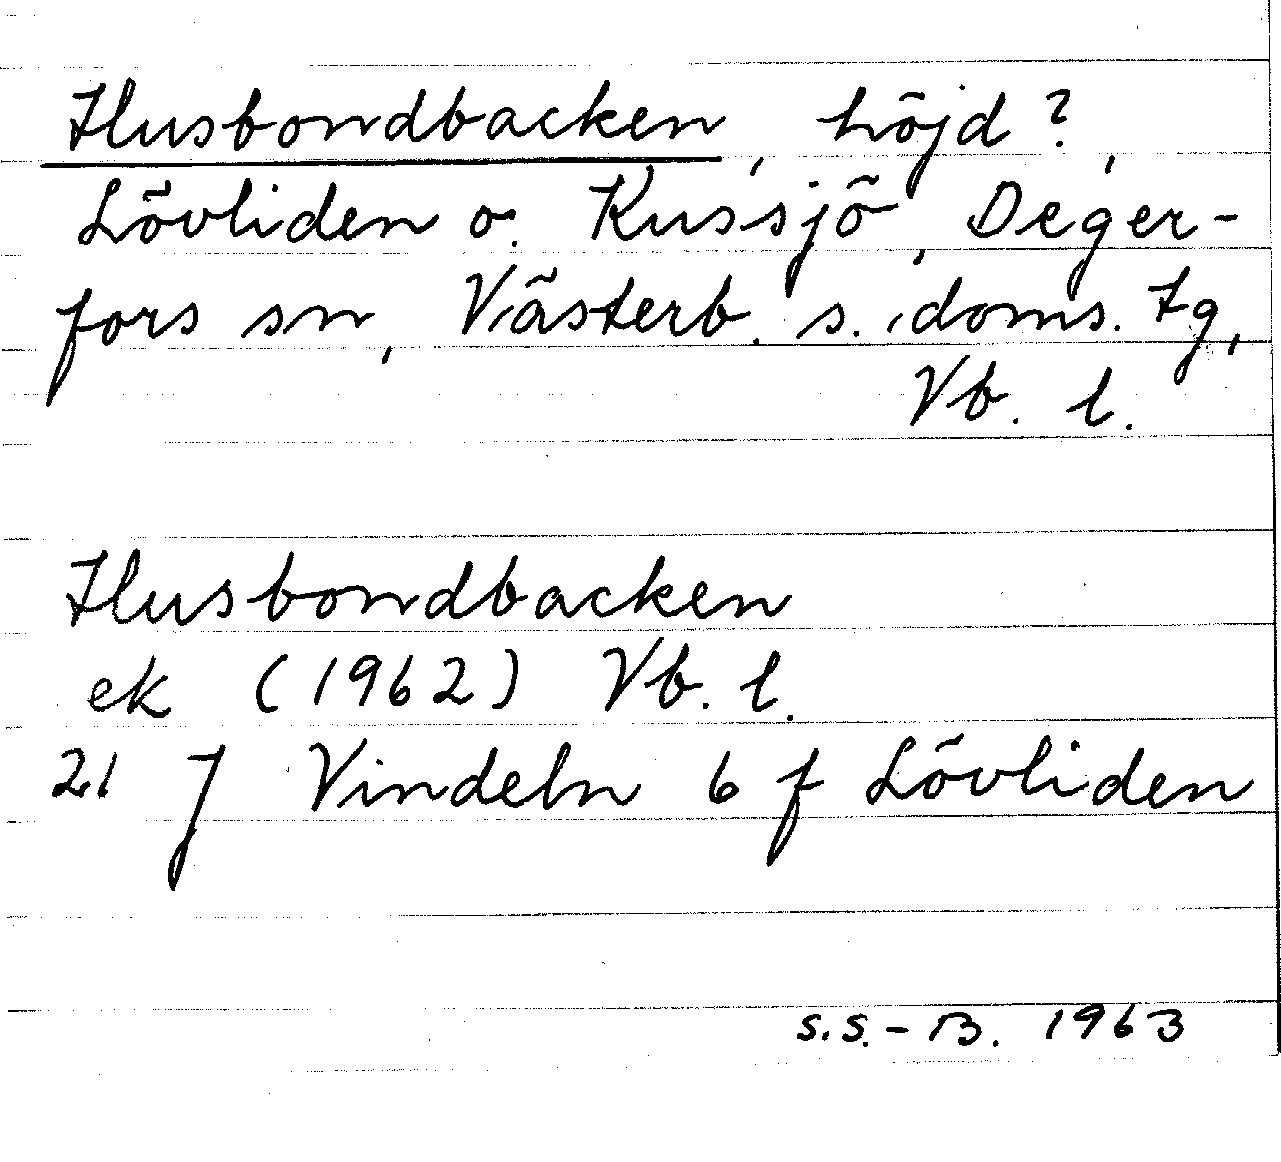 Husbondbacken, höjd?,
Lövliden o. Kussjö, Deger-
fors sn, Västerb. s. doms. tg,
Vb. l.
Husbondbacken
ek (1962) Vb. l.
21 J Vindeln 6 f Lövliden
S.S.-B. 1963